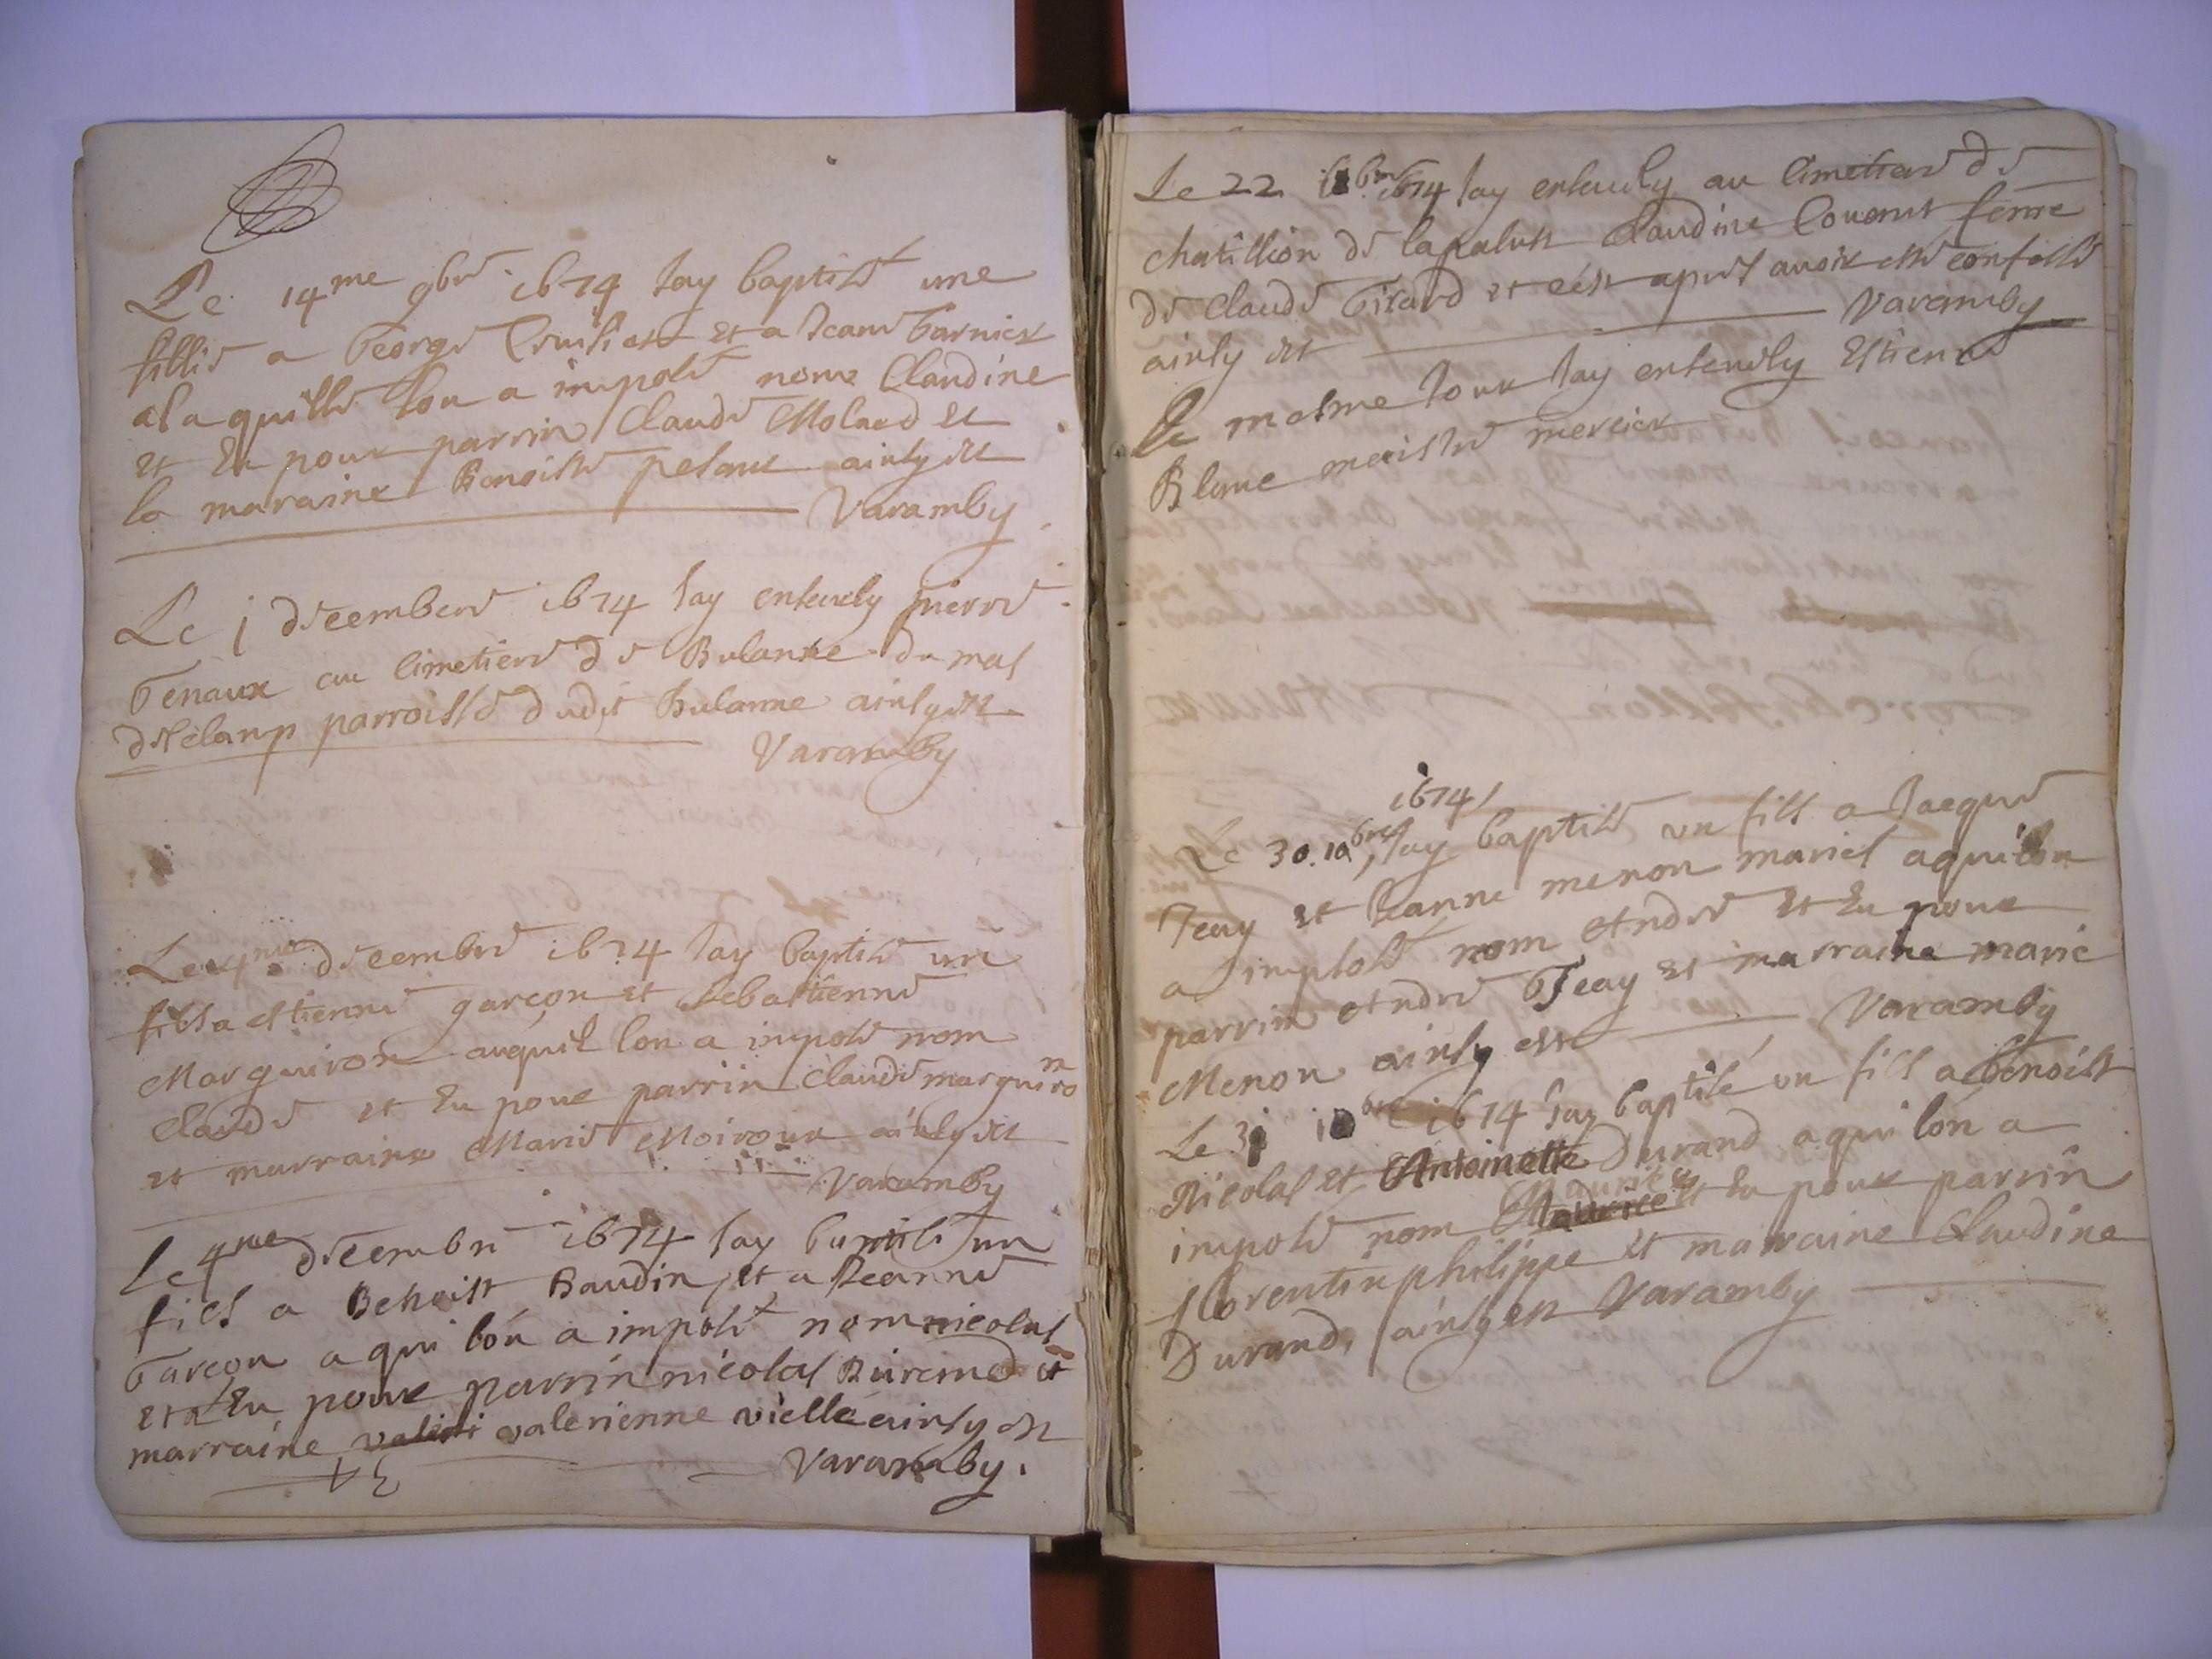 Le 14me 9bre 1674 Jay baptisé une
fillie a George et a Jeane Garnier
a laquelle lon a imposé nom Claudine
et Eu pour parrin Claude Molard et
la maraine Benoiste ainsy est
Varamby
Le j décembere 1674 Jay entervely pierre
Genaux au Cimetiere de Bulanne du mas
parroisse dudit Bulanne ainsy est
Varamby
décembre 1674 Jay baptisé un
fils a estienne garçon et Sebastienne
Marguiron auquel lon a imposé nom
Claude et Eu pour parrin Claude marguiron
et marraine Marie Moiroux ainsy est
Varamby
Le 4me décembre 1674 Jay baptisé un
fils a Benoist Baudin et a Jeanne
Garçon a qui lón a imposé nom nicolas
et a Eu pour parrin nicolas et
marraine valerienne vielle ainsy est
Varamby.
Le 22 1674 Jay entervely au Cimetiere de
chatillion de lapaluss Claudine femme
de Claude Girard et cést apres avoir esté confessé
ainsy est Varamby
le mesme Jour Jay entervely Estienne
mercier
1674
Le 30. 10bre Jay baptisé un fils a Jacque
Feay et Jeanne menon mariés a qui lon
a imposé nom Andre et Eu pour
parrin Andre Feay et marraine marie
Menon ainsy est Varamby
Le 31 10bre 1674 Jay baptisé un fils a Benoist
Nicolas et Antoinette Durand a qui lón a
imposé nom Maurice et Eu pour parrin
florentin philippe et marraine Claudine
Durand, ainsy est Varamby